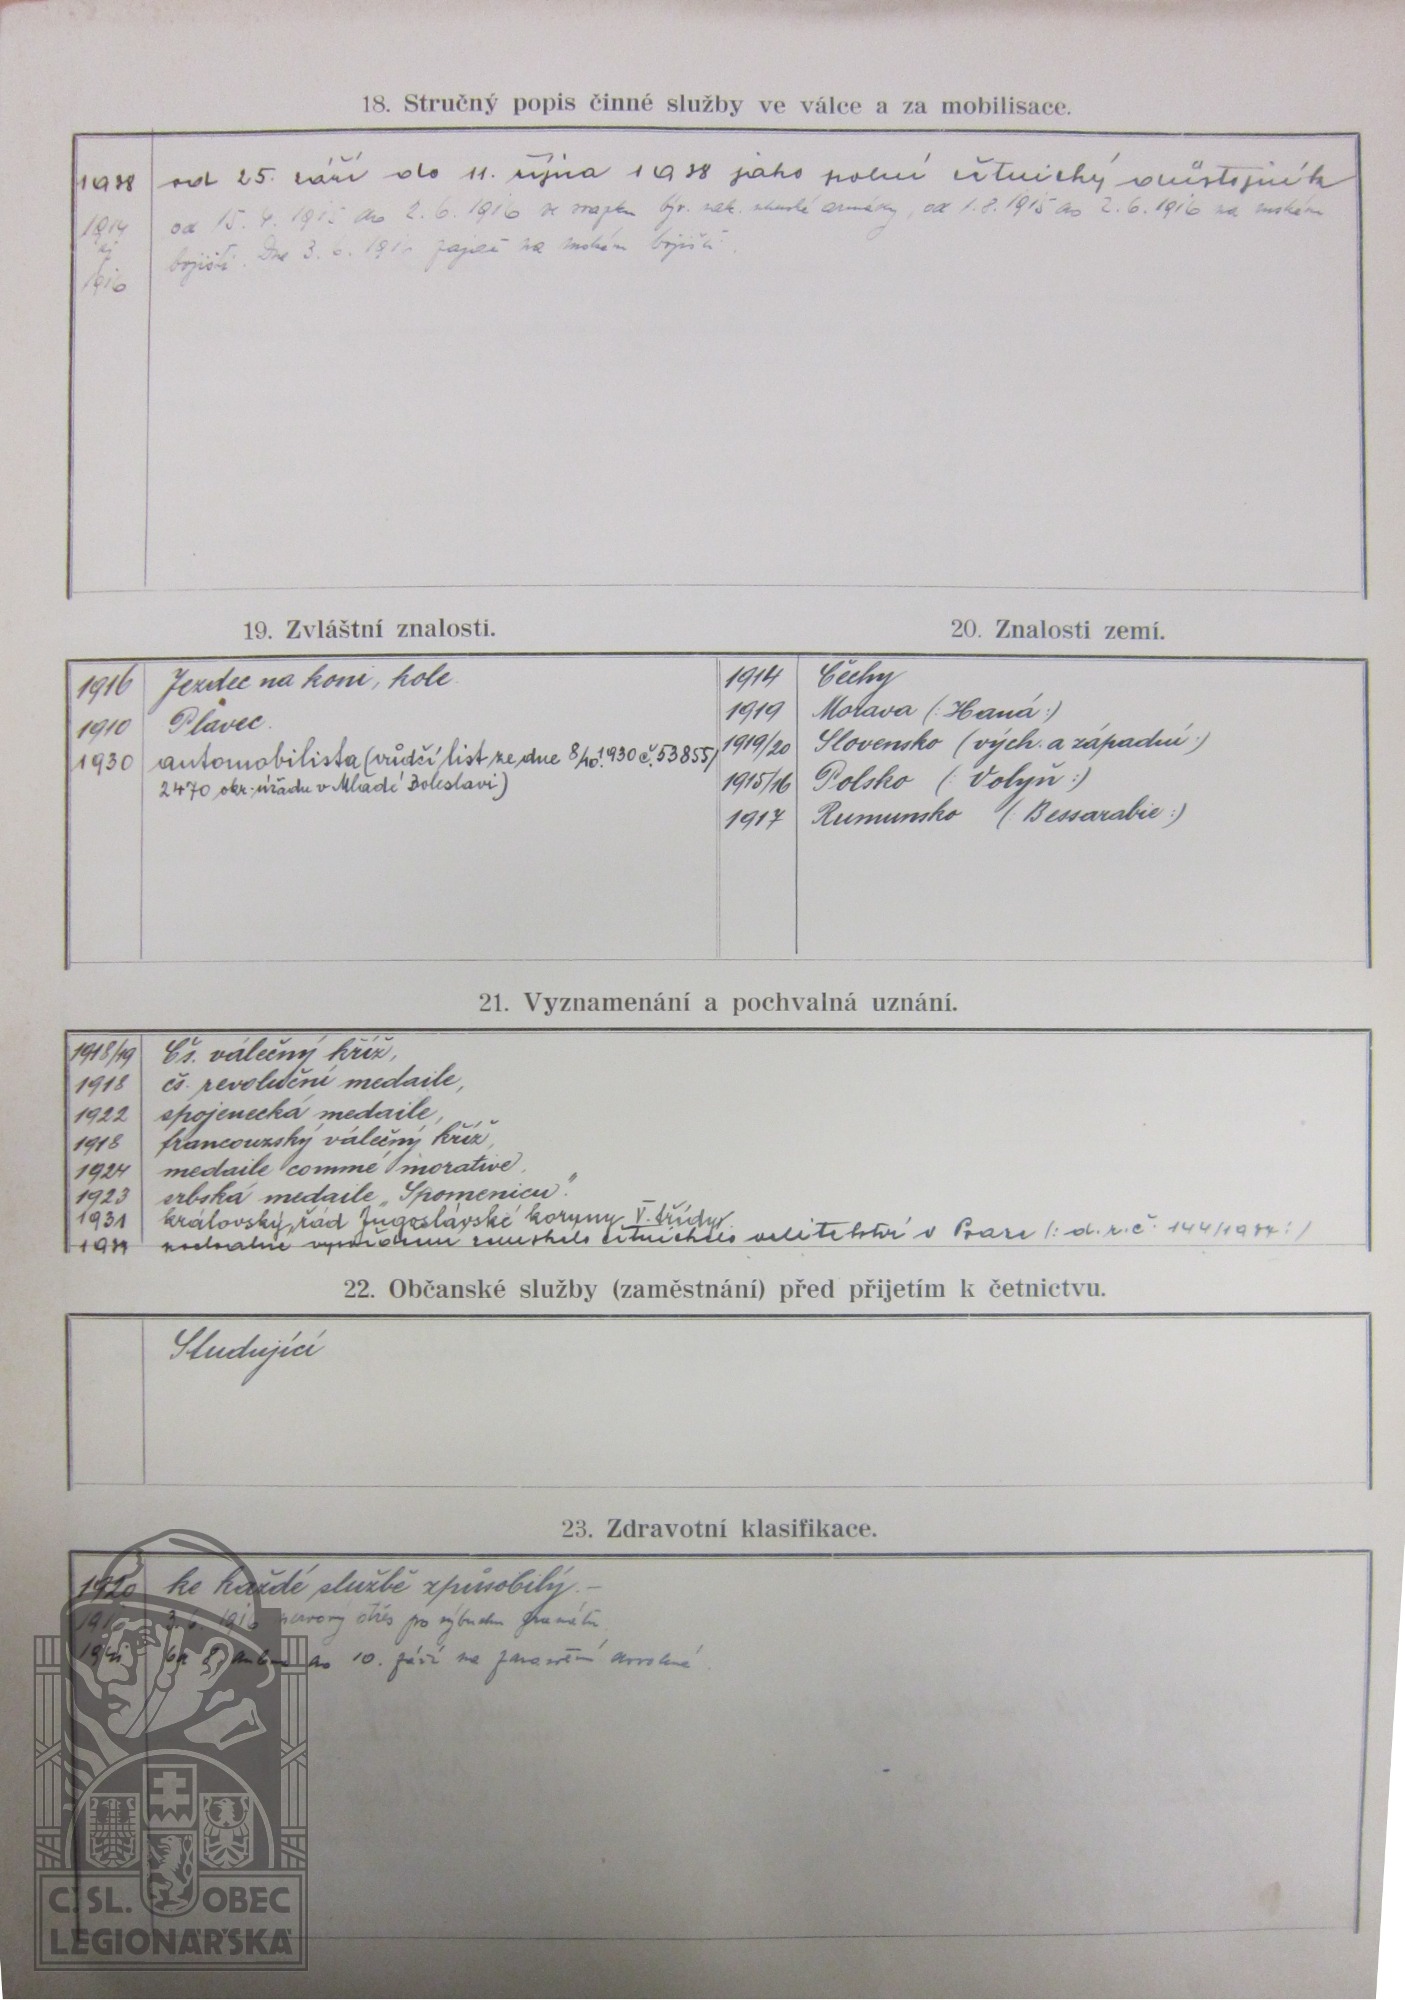 18. Stručný popis činné služby ve válce a za mobilisace.
1938 od 25. září do 11. října 1938 jako polní četnický důstojník
1914 od 15. 4. 1915 do 2. 6. 1916 ve svazku býv. rak. armády, od 1. 8. 1915 do 2. 6. 1916 na ruském
až bojišti. Dne 3. 6. zajat na ruském bojišti.
1916
19. Zvláštní znalosti.
1916 Jezdec na koni, kole.
1910 Plavec.
1930 automobilista (vůdčí list ze dne 8/10.1930 č. 53855/
2470 okr. úřadu v Mladé Boleslavi)
20. Znalosti zemí.
1914 Čechy
1919 Morava (: Haná :)
1919/20 Slovensko (vých. a západní :)
1915/16 Polsko (: Volyň :)
1917 Rumunsko (: Bessarabie :)
21. Vyznamenání a pochvalná uznání.
1918/19 Čs. válečný kříž,
1918 čs. revoluční medaile,
1922 spojenecká medaile,
1918 francouzský válečný kříž,
1924 medaile commémorative,
1923 srbská medaile „Spomenicu".
1931 královský řád Jugoslávské koruny V. třídy.
pochvalné zemského četnického velitelství v Praze (: d. r. č.
22. Občanské služby (zaměstnání) před přijetím k četnictvu.
Studující
23. Zdravotní klasifikace.
1920 ke každé službě způsobilý. –
1916 3. 6. 1916 nervový otřes po výbuchu granátu.
1941 od 8. dubna do 10. září na zdravotní dovolené.
Č. SL. OBEC
LEGIONÁŘSKÁ